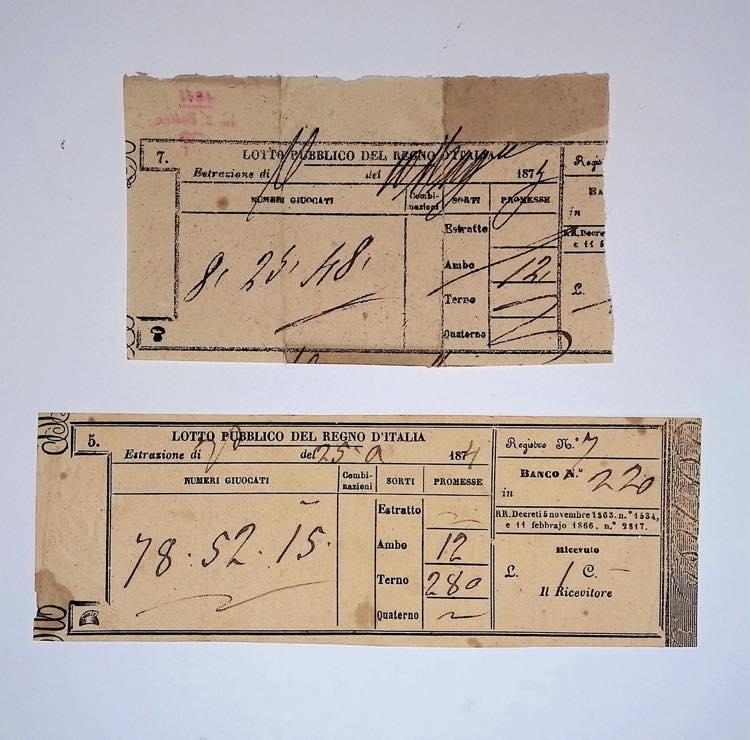 7.
LOTTO PUBBLICO DEL REGNO D'ITALIA
Estrazione di del 187
NUMERI GIUOCATI
Combi-
nazioni
SORTI
PROMESSE
8, 25, 48,
Estratto
Ambo 12
Terno
Quaterno
Regis
BA
in
RR. Decre
e 11 f
L.
5.
LOTTO PUBBLICO DEL REGNO D'ITALIA
Estrazione di del 25 1874
NUMERI GIUOCATI
Combi-
nazioni
SORTI
PROMESSE
78. 52. 15.
Estratto
Ambo 12
Terno 280
Quaterno
Registro N.° 7
BANCO N.° 220
in
RR. Decreti 5 novembre 1863. n.° 1534,
e 11 febbrajo 1866, n.° 2817.
Ricevuto
L. 1 C. –
Il Ricevitore